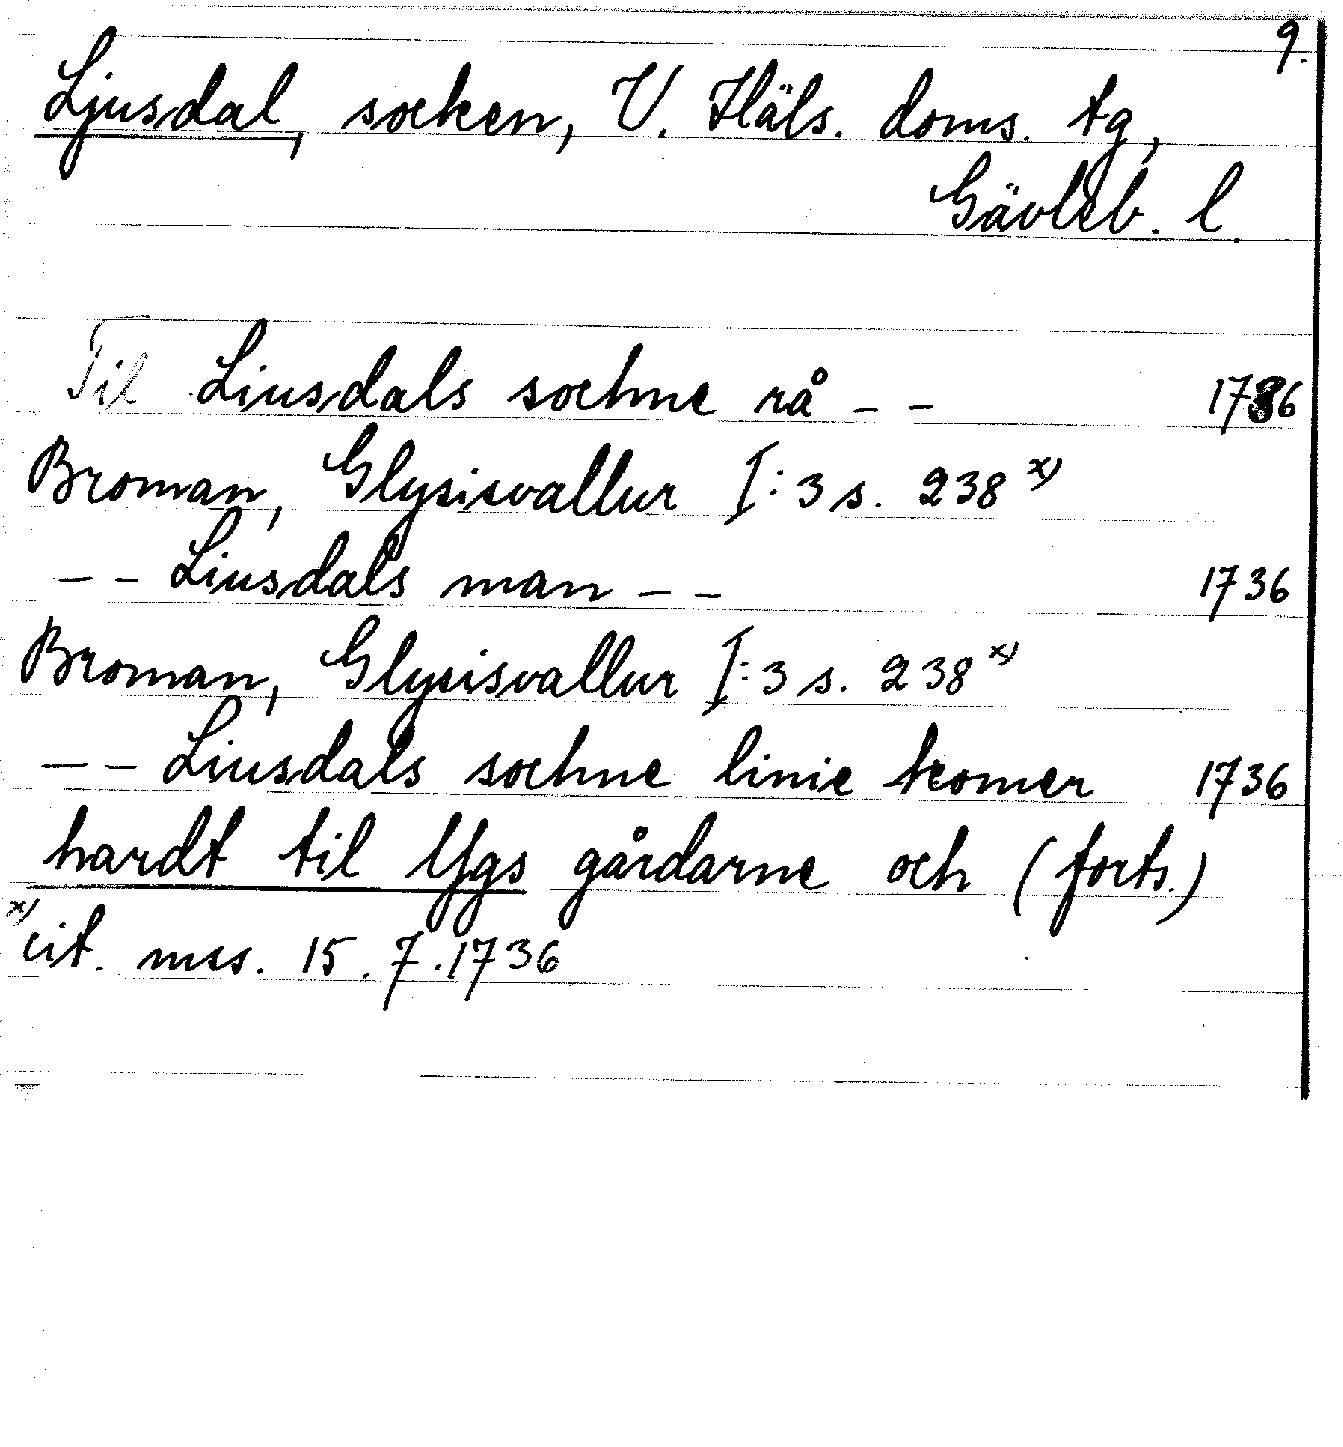 9.
Ljusdal, socken, V. Häls. doms. tg,
Gävleb. l.
Til Liusdals sochne rå - - 1736
Broman, Glysisvallur I:3 s. 238 x)
- - Liusdals man - - 1736
Broman, Glysisvallur I:3 s. 238 x)
- - Liusdals sochne linie komer 1736
hardt til Ygs gårdarne och (forts.)
x) cit. mss. 15.7.1736